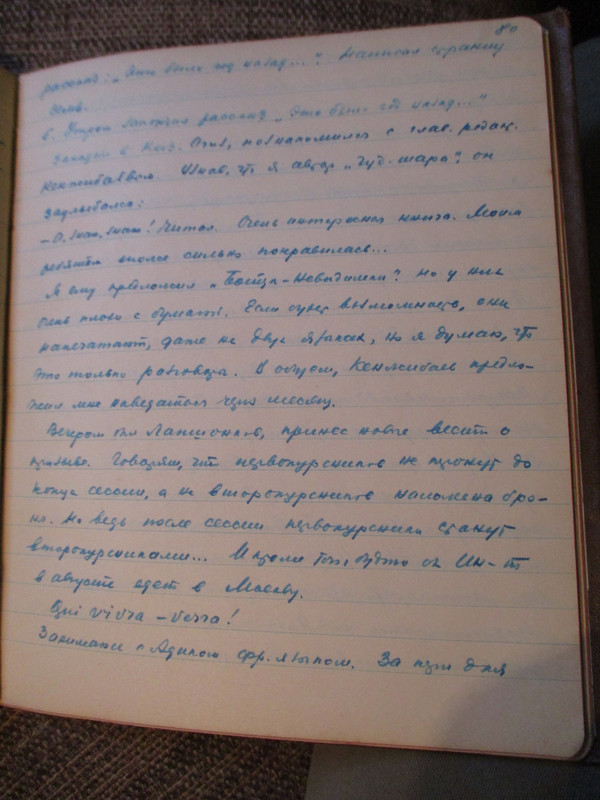 80
рассказ: „Это было год назад...". Написал страниц
6. Утром закончил рассказ „Это было год назад..."
Заходил в Каз. Огиз, познакомился с глав. редак.
Кенжибаевым. Узнав, что я автор „Чуд. шара", он
заулыбался:
– О, знаю, знаю! Читал. Очень интересная книга. Моим
ребятам очень сильно понравилась...
Я ему предложил „Бойцы-Невидимки". Но у них
очень плохо с бумагой. Если будет возможность, они
напечатают, даже на двух языках, но я думаю, что
это только разговоры. В общем, Кенжибаев предло-
жил мне наведаться через месяц.
Вечером был Лапшонков, принес новые вести о
призыве. Говорят, что первокурсников не тронут до
конца сессии, а на второкурсников наложена бро-
ня. Но ведь после сессии первокурсники станут
второкурсниками... И кроме того, будто он Ин-т
в августе едет в Москву.
Qui vivra – verra!
Занимаюсь с Адиком фр. языком. За три дня